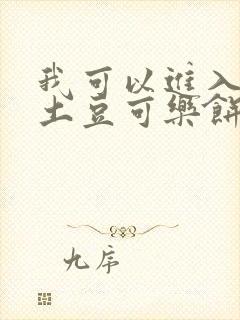 我可以進入
土豆可樂餅
九席